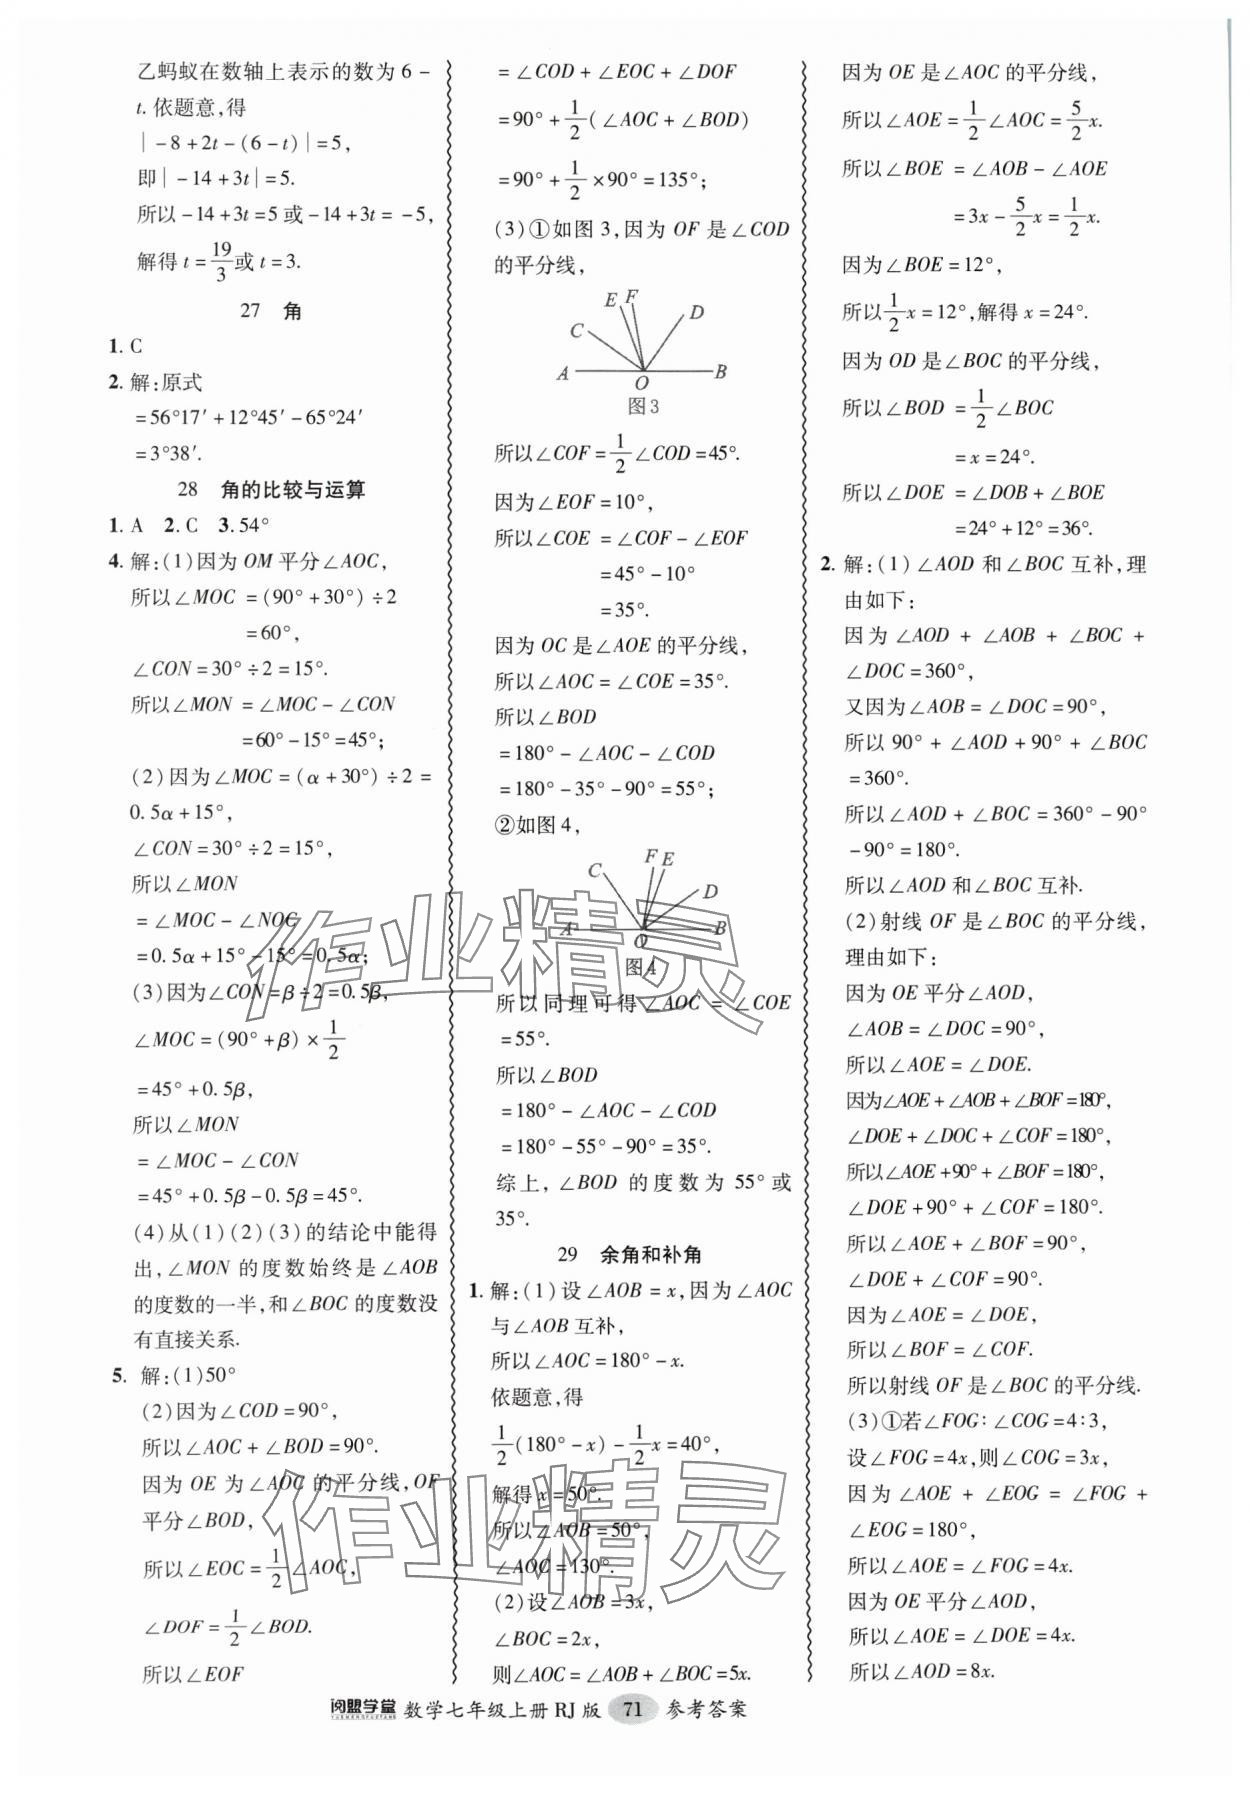 乙蚂蚁在数轴上表示的数为 6 -
t. 依题意,得
| -8 + 2t - (6 - t) | = 5,
即 | -14 + 3t | = 5.
所以 -14 + 3t = 5 或 -14 + 3t = -5,
解得 t = 19/3 或 t = 3.
27 角
1. C
2. 解:原式
= 56°17′ + 12°45′ - 65°24′
= 3°38′.
28 角的比较与运算
1. A 2. C 3. 54°
4. 解:(1)因为 OM 平分∠AOC,
所以∠MOC = (90° + 30°) ÷ 2
= 60°,
∠CON = 30° ÷ 2 = 15°.
所以∠MON = ∠MOC - ∠CON
= 60° - 15° = 45°;
(2)因为∠MOC = (α + 30°) ÷ 2 =
0.5α + 15°,
∠CON = 30° ÷ 2 = 15°,
所以∠MON
= ∠MOC - ∠NOC
= 0.5α + 15° - 15° = 0.5α;
(3)因为∠CON = β ÷ 2 = 0.5β,
∠MOC = (90° + β) × 1/2
= 45° + 0.5β,
所以∠MON
= ∠MOC - ∠CON
= 45° + 0.5β - 0.5β = 45°.
(4)从(1)(2)(3)的结论中能得
出,∠MON 的度数始终是∠AOB
的度数的一半,和∠BOC 的度数没
有直接关系.
5. 解:(1)50°
(2)因为∠COD = 90°,
所以∠AOC + ∠BOD = 90°.
因为 OE 为∠AOC 的平分线,OF
平分∠BOD,
所以∠EOC = 1/2 ∠AOC,
∠DOF = 1/2 ∠BOD.
所以∠EOF
= ∠COD + ∠EOC + ∠DOF
= 90° + 1/2 (∠AOC + ∠BOD)
= 90° + 1/2 × 90° = 135°;
(3)①如图 3,因为 OF 是∠COD
的平分线,
E F
D
C
A O B
图 3
所以∠COF = 1/2 ∠COD = 45°.
因为∠EOF = 10°,
所以∠COE = ∠COF - ∠EOF
= 45° - 10°
= 35°.
因为 OC 是∠AOE 的平分线,
所以∠AOC = ∠COE = 35°.
所以∠BOD
= 180° - ∠AOC - ∠COD
= 180° - 35° - 90° = 55°;
②如图 4,
C F E
D
A O B
图 4
所以同理可得∠AOC = ∠COE
= 55°.
所以∠BOD
= 180° - ∠AOC - ∠COD
= 180° - 55° - 90° = 35°.
综上,∠BOD 的度数为 55° 或
35°.
29 余角和补角
1. 解:(1)设∠AOB = x,因为∠AOC
与∠AOB 互补,
所以∠AOC = 180° - x.
依题意,得
1/2 (180° - x) - 1/2 x = 40°,
解得 x = 50°.
所以∠AOB = 50°,
∠AOC = 130°.
(2)设∠AOB = 3x,
∠BOC = 2x,
则∠AOC = ∠AOB + ∠BOC = 5x.
因为 OE 是∠AOC 的平分线,
所以∠AOE = 1/2 ∠AOC = 5/2 x.
所以∠BOE = ∠AOB - ∠AOE
= 3x - 5/2 x = 1/2 x.
因为∠BOE = 12°,
所以 1/2 x = 12°,解得 x = 24°.
因为 OD 是∠BOC 的平分线,
所以∠BOD = 1/2 ∠BOC
= x = 24°.
所以∠DOE = ∠DOB + ∠BOE
= 24° + 12° = 36°.
2. 解:(1)∠AOD 和∠BOC 互补,理
由如下:
因为∠AOD + ∠AOB + ∠BOC +
∠DOC = 360°,
又因为∠AOB = ∠DOC = 90°,
所以 90° + ∠AOD + 90° + ∠BOC
= 360°.
所以∠AOD + ∠BOC = 360° - 90°
- 90° = 180°.
所以∠AOD 和∠BOC 互补.
(2)射线 OF 是∠BOC 的平分线,
理由如下:
因为 OE 平分∠AOD,
∠AOB = ∠DOC = 90°,
所以∠AOE = ∠DOE.
因为∠AOE + ∠AOB + ∠BOF = 180°,
∠DOE + ∠DOC + ∠COF = 180°,
所以∠AOE + 90° + ∠BOF = 180°,
∠DOE + 90° + ∠COF = 180°.
所以∠AOE + ∠BOF = 90°,
∠DOE + ∠COF = 90°.
因为∠AOE = ∠DOE,
所以∠BOF = ∠COF.
所以射线 OF 是∠BOC 的平分线.
(3)①若∠FOG∶∠COG = 4∶3,
设∠FOG = 4x,则∠COG = 3x,
因为∠AOE + ∠EOG = ∠FOG +
∠EOG = 180°,
所以∠AOE = ∠FOG = 4x.
因为 OE 平分∠AOD,
所以∠AOE = ∠DOE = 4x.
所以∠AOD = 8x.
作业精灵
作业精灵
阅盟学堂 数学七年级上册 RJ 版 71 参考答案